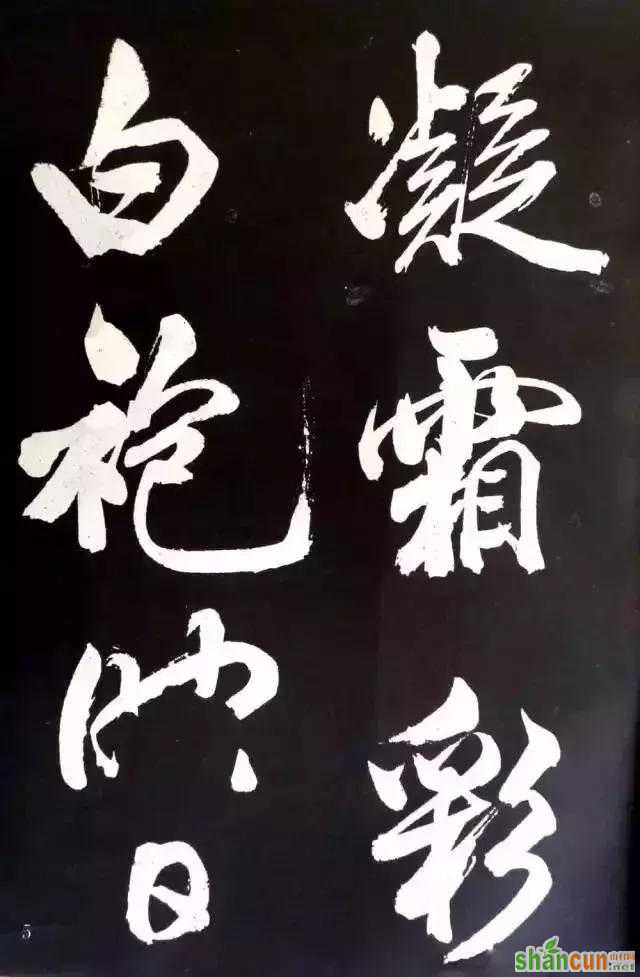 凝霜彩
白袍映日
5
shancun
.net